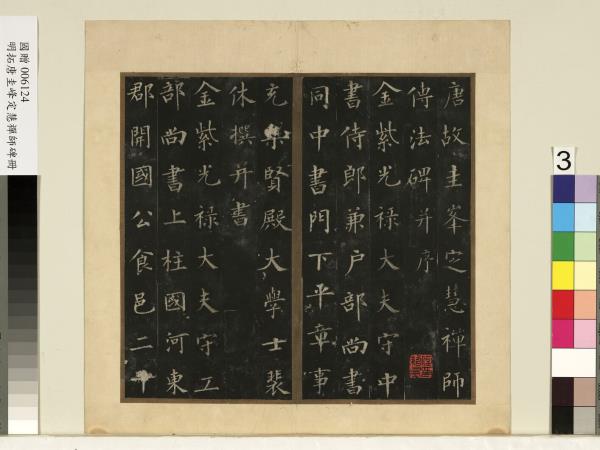 唐故圭峯定慧禪師
傳法碑并序
金紫光祿大夫守中
書侍郎兼戶部尚書
同中書門下平章事
充集賢殿大學士裴
休撰并書
金紫光祿大夫守工
部尚書上柱國河東
郡開國公食邑二千
國贈 006124
明拓唐圭峰定慧禪師碑冊
3